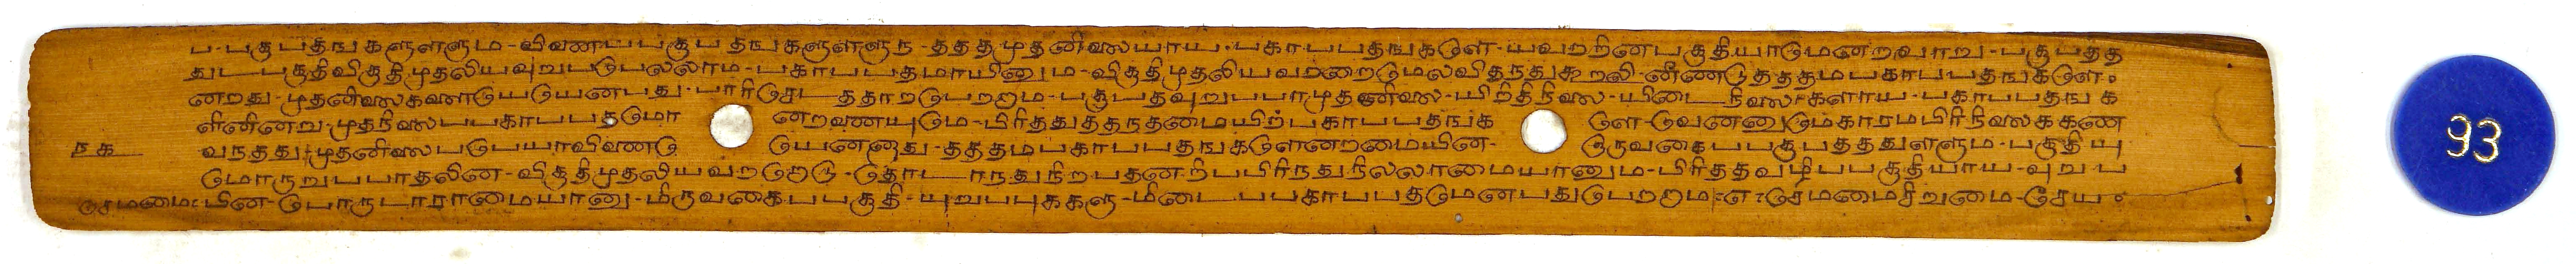 ப-பகுபதஙகளுளளும-விவணபபகுபதஙகளுளளுந-தததமுதனிலையாய-பகாபபதஙகளெ-யவறறினபகுதியாமெனறவாறு-பகுபதத
துடபகுதிவிகுதிமுதலியவுறுபபுபலலாம-பகாபபதமாயினும-விகுதிமுதலியவறறைமெலவிதநதுகூறலி-னீணடுதததமபகாபபதஙகளெ
னறது-முதனிலைகளையெயெனபது-பாரிசெடததாறபெறறும-பகுபதவுறுபபாமுதனிலை-யிறிதிநிலை-யிடைநிலைகளாய-பகாபபதஙக
ளினினறு-முதநிலைபபகாபபதமொ னறவணயுமெ-பிரிததுததநதமையிறபகாபபதஙக ளெ-வெனனுமெகாரமபிரிநிலைககண
ந௧ வநதது-முதனிலைபெயாவிவணெ யெனனாது-தததமபகாபபதஙகளெனறமையின- ஒருவகைபபகுபதததுளளும-பகுதியு
மொருறுபபாதலின-விகுதிமுதலியவறறொடு-தொடாநதுநிறபதனறிபபிரிநதுநிலலாமையானும-பிரிததவழிபபகுதியாய-வுறுப
செமமையின-பொருடாராமையானு-மிருவகைபபகுதி-யுறுபபுககளு-மிடைபபகாபபதமெனபதுபெறறும-எ-செமமைசிறுமை-செய
93